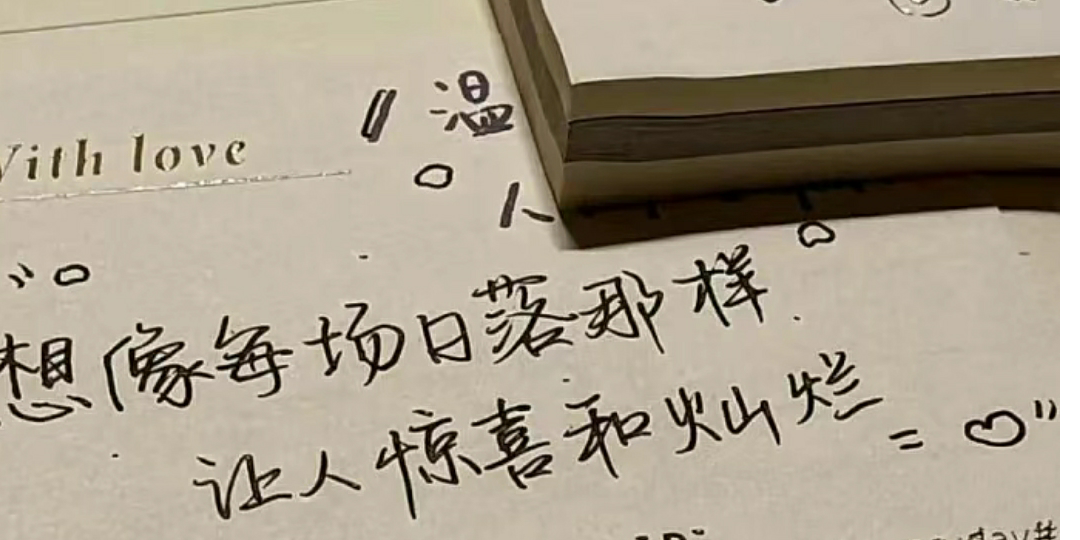 With love
温
人
想像每场日落那样.
让人惊喜和灿烂